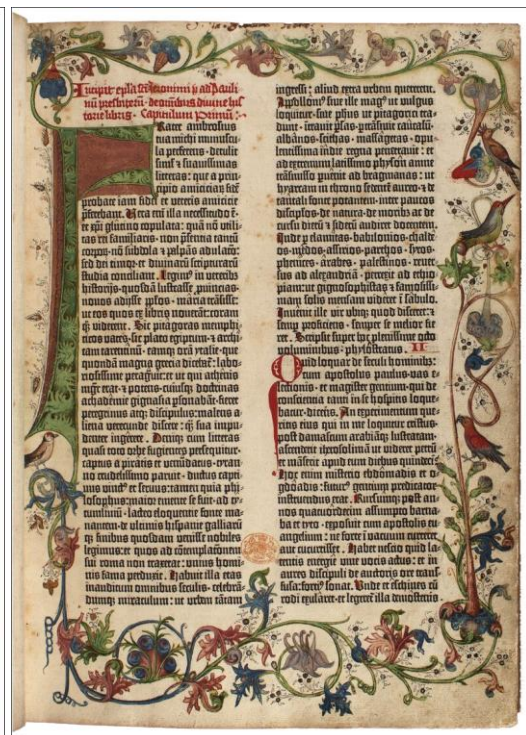 Incipit epistola sancti iheronimi ad Pauli
num presbiterum de omnibus divine his
torie libris. Capitulum primum.
Frater ambrosius
tua michi munuscula
perferens · detulit
simul et suavissimas
litteras: que a prin
cipio amiciciar· fidē
probate iam fidei et veteris amicicie
preferebant. Vera enī illa necessitudo ē·
et xpi glutino copulata: quā nō utili-
tas rei familiaris · nō presentia tantū
corpor· · nō subdola et palpās adulatio·
sed dei timor · et divinarū scripturarū
studia conciliant. Legim⁹ in veteribs
historijs · quosdā lustrasse puincias ·
novos adijsse pplos · maria trāsisse:
ut eos quos ex libris noverāt: coram
qz viderent. Sic pitagoras memphi-
ticos vates · sic plato egiptum · et archi-
tam tarentinū · eamqz orā ytalie · que
quondā magna grecia dicebat·: labo-
riosissime peragrauit: et ut qui athenis
mgr̄ erat · et potens · cuiusqz doctrinas
achademie gignasia psonabāt · fieret
peregrinus atqz discipulus: malens a-
liena verecunde discere: qz sua impu-
denter ingerere. Deniqz cum litteras
quasi toto orbe fugientes persequitur ·
captus a piratis et venūdatus · tyran-
no crudelissimo paruit · ductus capti-
vus vinct⁹ et servus: tamen quia phi-
losophus: maior emente se fuit · ad ty-
tumlivium · lacteo eloquentie fonte ma-
nantem · de ultimis hispanie galliarū-
qz finibus · quosdam venisse nobiles
legimus: et quos ad cōtemplationem
sui roma non traxerat: unius homi-
nis fama perduxit. Habuit illa etas
inauditum omnibus seculis · celebrā-
dumqz miraculum: ut urbem tātam
ingressi: aliud extra urbem quererent.
Apolloni⁹ sive ille mag⁹ ut vulgus
loquitur · sive phus · ut pitagorici tra-
dunt · intrauit psas · ptrāsiuit caucasū ·
albanos · scithas · massagetas · opu-
lentissima indie regna penetrauit: et
ad extremum latissimo physon amne
trāsmisso puenit ad bragmanas: ut
hyarcam in throno sedentē aureo · et de
tantali fonte potantem · inter paucos
discipulos · de natura · de moribs ac de
cursu dierū et siderū audiret docentem.
Inde p elamitas · babilonios · chalde-
os · medos · assirios · parthos · syros ·
phenices · arabes · palestinos · reuer-
sus ad alexandriā · perrexit ad ethio-
piam: ut gignosophistas et famosissi-
mam solis mensam videret ī sabulo.
Invenit ille vir ubiqz quod disceret: et
semp proficiens · semper se melior fie-
ret. Scripsit super hoc plenissime octo
voluminibus · phylostratus. II
Quid loquar de seculi hominibz:
cum apostolus paulus · vas e-
lectionis · et magister gentium · qui de
conscientia tanti in se hospitis loque-
batur · dicens. An experimentum que-
ritis eius qui in me loquitur cristus.
Post damascum arabiāqz lustratam ·
ascenderit iherosolimā ut videret petrū
et māserit apud eum diebus quindeci.
Hoc enim misterio ebdomadis et o-
gdoadis · futur⁹ gentium predicator
instruendus erat. Rursumqz post an-
nos quatuordecim assumpto barna-
ba et tyto · exposuit cum apostolis eu-
angelium: ne forte ī vacuum curreret
aut cucurrisset. Habet nescio quid la-
tentis energie viue vocis actus: et in
aures discipuli de auctoris ore trans-
fusa: forti⁹ sonat. Unde et eschines cū
rodi exularet · et legeret illa demostenis